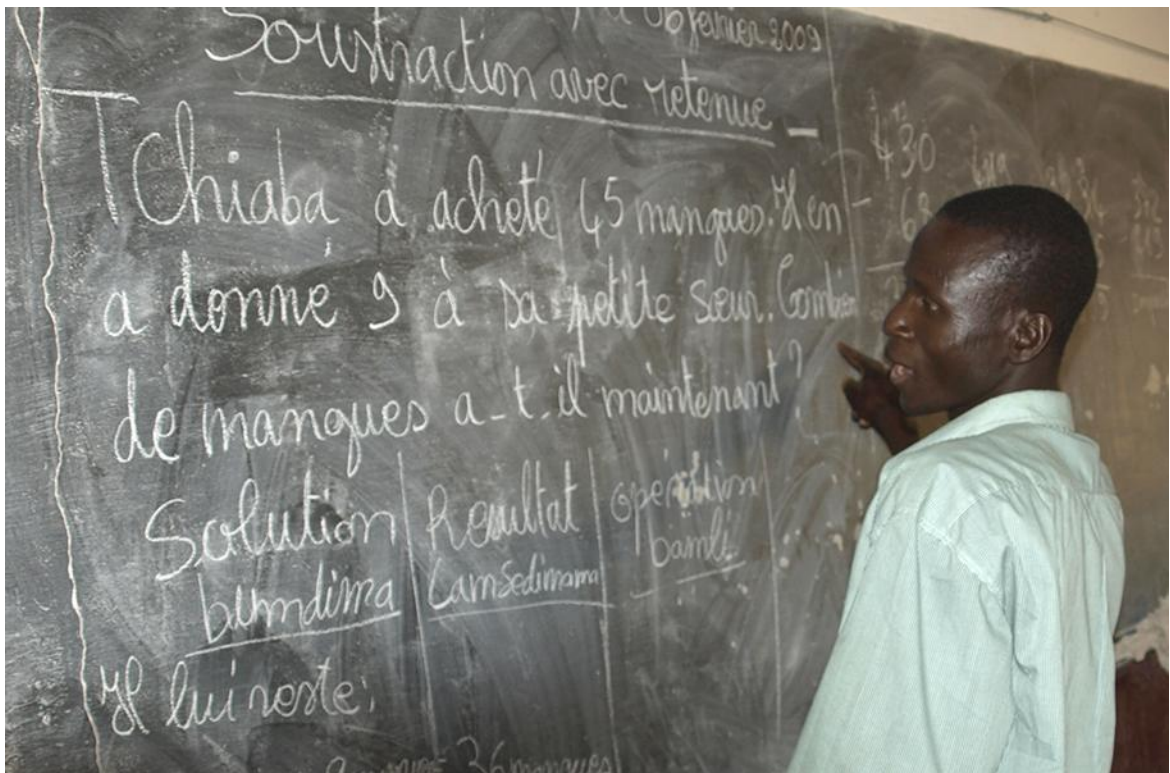 06 février 2009
Soustraction avec retenue
Tchiaba a acheté 45 mangues. Il en
a donné 9 à sa petite sœur. Combien
de mangues a-t-il maintenant?
Solution Resultat opération
bumdima Lamsedimama bamli
Il lui reste:
36 mangues
430